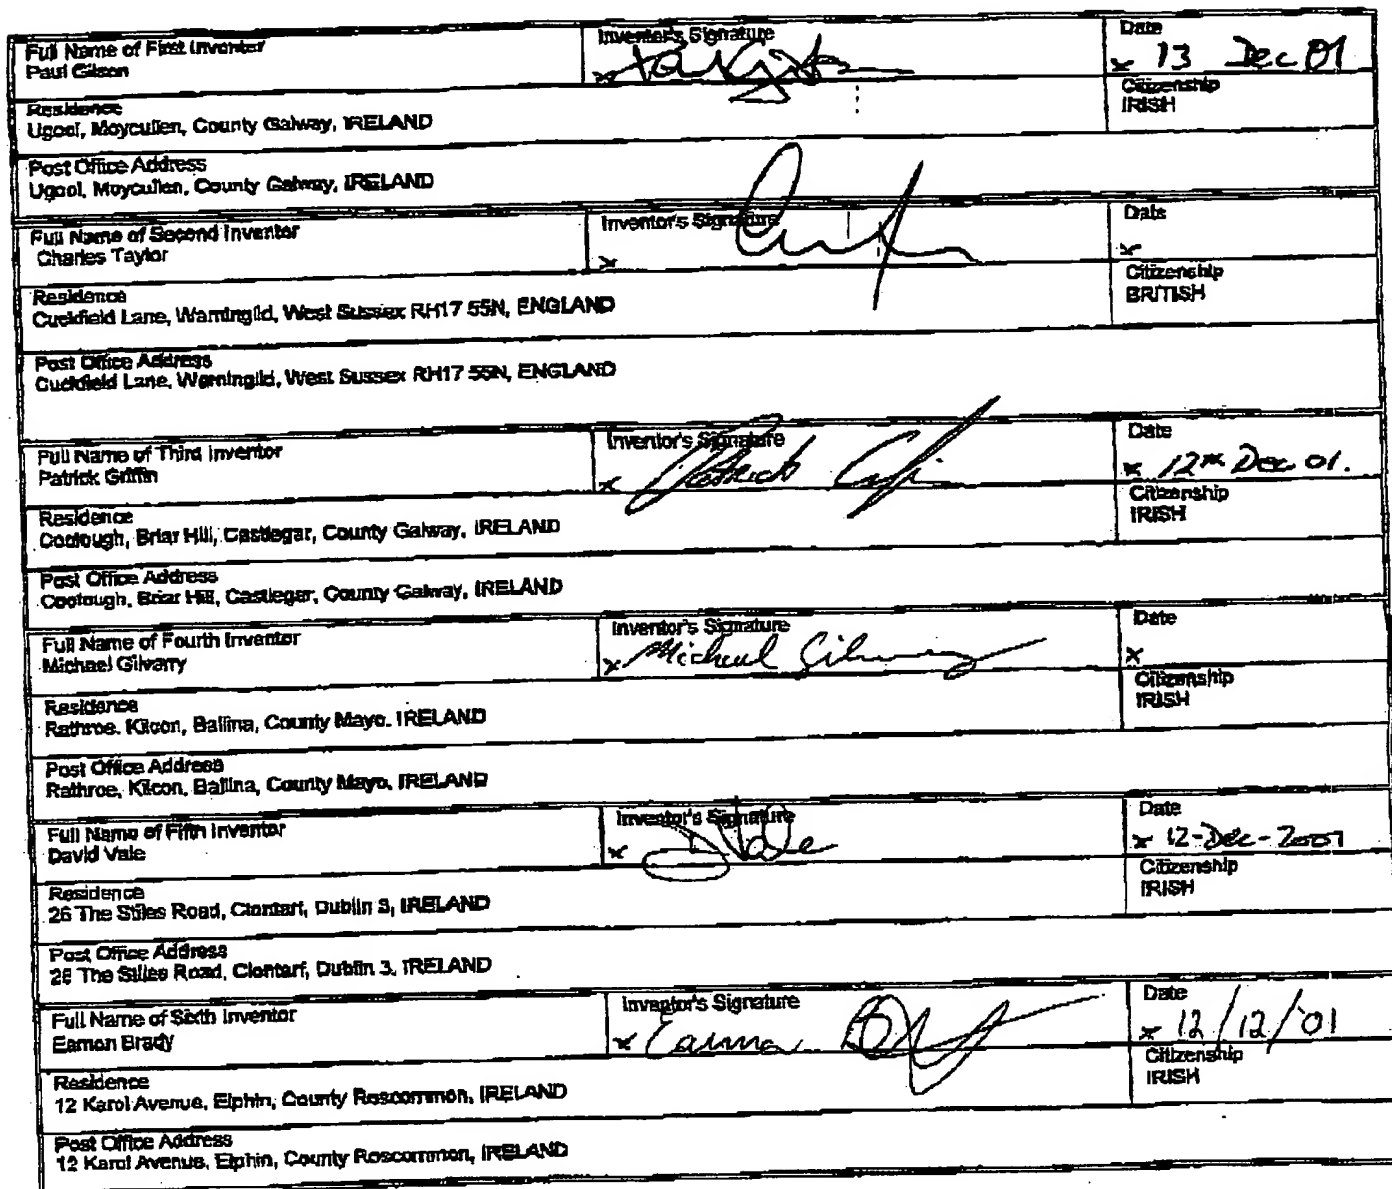 Full Name of First Inventor
Paul Gilson
Inventor's Signature
x
Date
x 13 Dec 01
Residence
Ugool, Moycullen, County Galway, IRELAND
Citizenship
IRISH
Post Office Address
Ugool, Moycullen, County Galway, IRELAND
Full Name of Second Inventor
Charles Taylor
Inventor's Signature
x
Date
x
Residence
Cuckfield Lane, Warninglid, West Sussex RH17 55N, ENGLAND
Citizenship
BRITISH
Post Office Address
Cuckfield Lane, Warninglid, West Sussex RH17 55N, ENGLAND
Full Name of Third Inventor
Patrick Griffin
Inventor's Signature
x Patrick Griffin
Date
x 12th Dec 01.
Residence
Coolough, Briar Hill, Castlegar, County Galway, IRELAND
Citizenship
IRISH
Post Office Address
Coolough, Briar Hill, Castlegar, County Galway, IRELAND
Full Name of Fourth Inventor
Michael Gilvarry
Inventor's Signature
x Micheal Gilvarry
Date
x
Residence
Rathroe, Kilcon, Ballina, County Mayo, IRELAND
Citizenship
IRISH
Post Office Address
Rathroe, Kilcon, Ballina, County Mayo, IRELAND
Full Name of Fifth Inventor
David Vale
Inventor's Signature
x D Vale
Date
x 12-Dec-2001
Residence
26 The Stiles Road, Clontarf, Dublin 3, IRELAND
Citizenship
IRISH
Post Office Address
26 The Stiles Road, Clontarf, Dublin 3, IRELAND
Full Name of Sixth Inventor
Eamon Brady
Inventor's Signature
x Eamon Brady
Date
x 12/12/'01
Residence
12 Karol Avenue, Elphin, County Roscommon, IRELAND
Citizenship
IRISH
Post Office Address
12 Karol Avenue, Elphin, County Roscommon, IRELAND